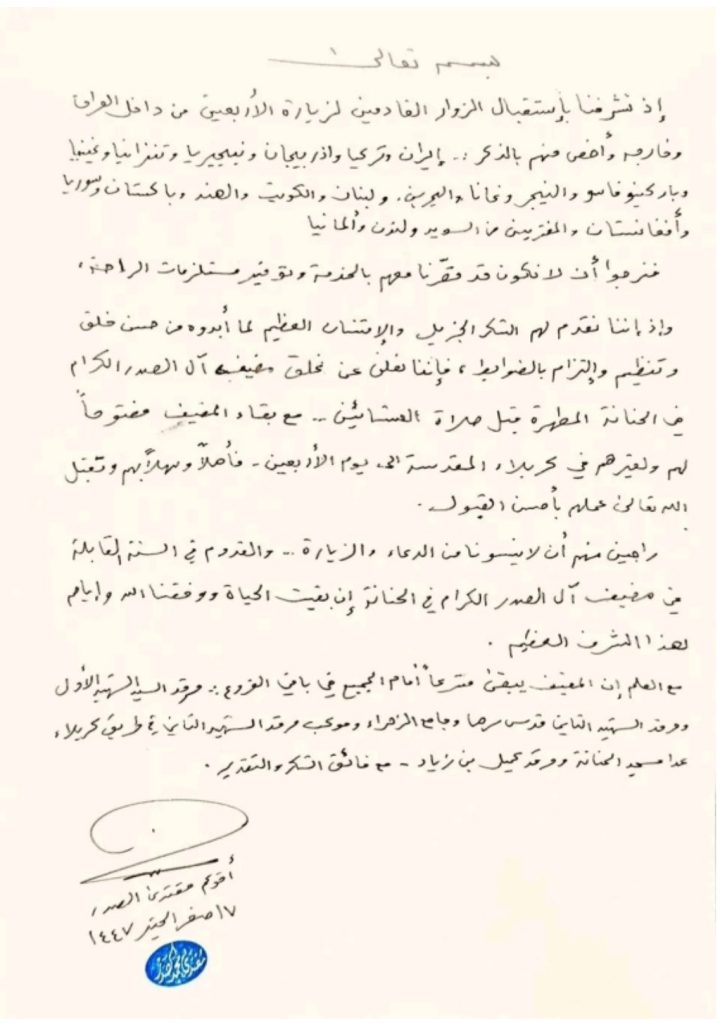 بسمه تعالى
إذ تشرفنا بإستقبال الزوار القادمين لزيارة الأربعين من داخل العراق
وخارجه وأخص منهم بالذكر :. إيران وتركيا واذربيجان ونيجيريا وتنزانيا وغينيا
وباركينوفاسو والنيجر وغانا والبحرين. ولبنان والكويت والهند وباكستان وسوريا
وأفغانستان والمغتربين من السويد ولندن وألمانيا
فنرجوا أن لا نكون قد قصّرنا معهم بالخدمة وتوفير مستلزمات الراحة،
وإذ إننا نقدم لهم الشكر الجزيل والإمتنان العظيم لما أبدوه من حسن خلق
وتنظيم وإلتزام بالضوابط، فإننا نعلن عن غلق مضيف آل الصدر الكرام
في الحنانة المطهرة قبل صلاة العشائين .. مع بقاء المضيف مفتوحاً
لهم ولغيرهم في كربلاء المقدسة الى يوم الأربعين - فأهلاً وسهلاً بهم وتقبل
الله تعالى عملهم بأحسن القبول .
راجين منهم أن لا ينسونا من الدعاء والزيارة .. والقدوم في السنة القابلة
في مضيف آل الصدر الكرام في الحنانة إن بقيت الحياة ووفقنا الله وإياهم
لهذا الشرف العظيم .
مع العلم إن المضيف يبقى مشرعاً أمام الجميع في باقي الفروع :. مرقد السيد الشهيد الأول
ومرقد الشهيد الثاني قدس سرهما وجامع الزهراء وموكب مرقد الشهيد الثاني في طريق كربلاء
عدا مسجد الحنانة ومرقد كميل بن زياد - مع فائق الشكر والتقدير .
أخوكم مقتدى الصدر
١٧ صفر الخير ١٤٤٧